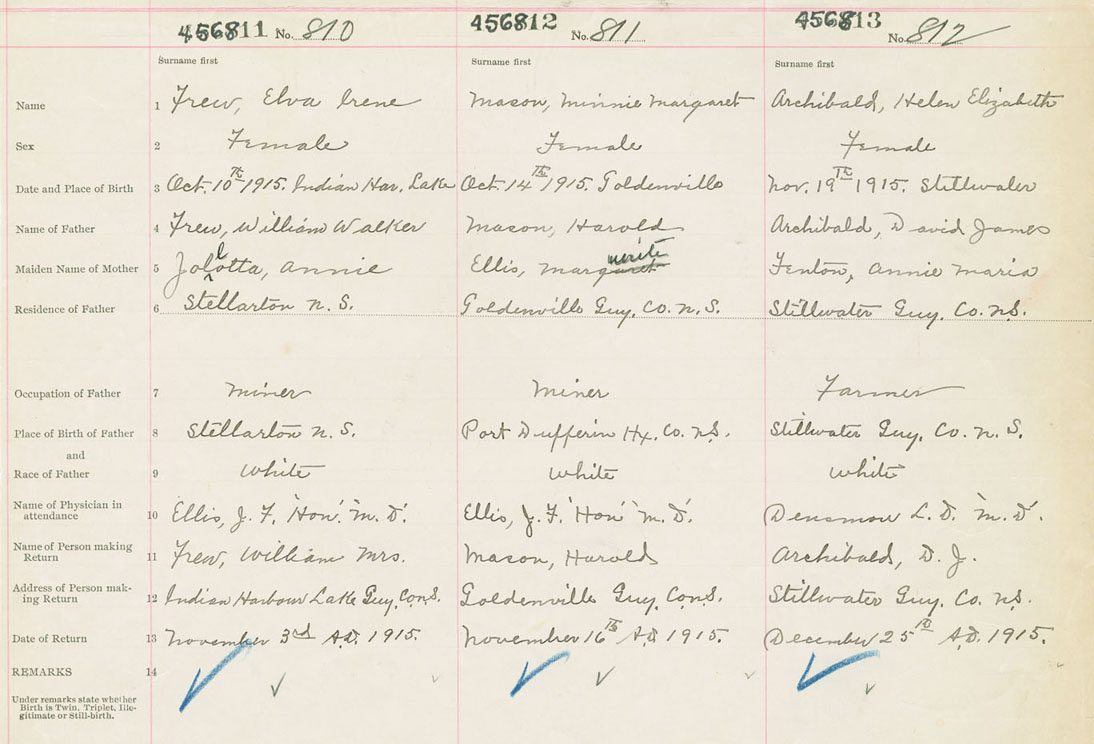 456811 No. 810 456812 No. 811 456813 No. 812
Surname first Surname first Surname first
Name 1 Frew, Elva Irene Mason, Minnie Margaret Archibald, Helen Elizabeth
Sex 2 Female Female Female
Date and Place of Birth 3 Oct. 10th 1915. Indian Har. Lake Oct. 14th 1915. Goldenville Nov. 19th 1915. Stillwater
Name of Father 4 Frew, William Walker Mason, Harold Archibald, David James
Maiden Name of Mother 5 Jollotta, Annie Ellis, Margaret uerite Fenton, Annie Maria
Residence of Father 6 Stellarton N. S. Goldenville Guy. Co. N. S. Stillwater Guy. Co. N.S.
Occupation of Father 7 Miner Miner Farmer
Place of Birth of Father 8 Stellarton N. S. Port Dufferin Hx. Co. N.S. Stillwater Guy. Co. N. S.
and
Race of Father 9 White White White
Name of Physician in
attendance 10 Ellis, J. F. "Hon". "M. D". Ellis, J. F. "Hon" "M. D". Densmow L. D. "M. D".
Name of Person making
Return 11 Frew, William Mrs. Mason, Harold Archibald, D. J.
Address of Person mak-
ing Return 12 Indian Harbour Lake Guy. Co. N.S. Goldenville Guy. Co. N.S. Stillwater Guy. Co. N.S.
Date of Return 13 November 3rd A.D. 1915. November 16th A.D. 1915. December 25th A.D. 1915.
REMARKS 14
Under remarks state whether
Birth is Twin, Triplet, Ille-
gitimate or Still-birth.